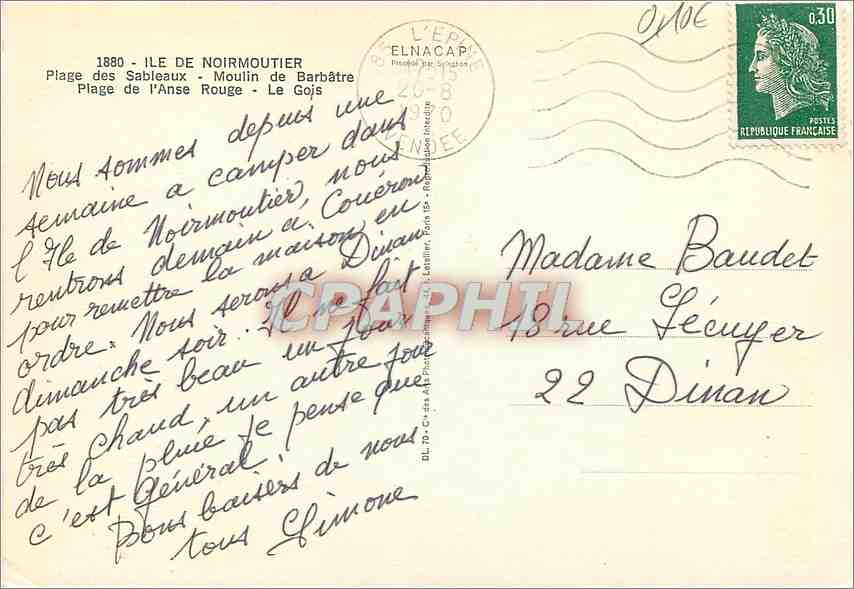 1880 - ILE DE NOIRMOUTIER
Plage des Sableaux - Moulin de Barbâtre
Plage de l'Anse Rouge - Le Gois
Nous sommes depuis une
semaine a camper dans
l'Ile de Noirmoutier, nous
rentrons demain à Couëron
pour remettre la maison en
ordre. Nous serons à Dinan
dimanche soir. Il ne fait
pas très beau un jour
très chaud, un autre jour
de la pluie je pense que
c'est général.
Bons baisers de nous
tous Simone
ELNACAP
Procédé par Sélection
85 L'EPINE
26-8
1970
VENDEE
DL. 70 - Cie des Arts Photomécaniques Letellier, Paris 15e - Reproduction Interdite
0,10€
0,30
POSTES
REPUBLIQUE FRANÇAISE
Madame Baudet
18 rue Lécuyer
22 Dinan
CPAPHIL